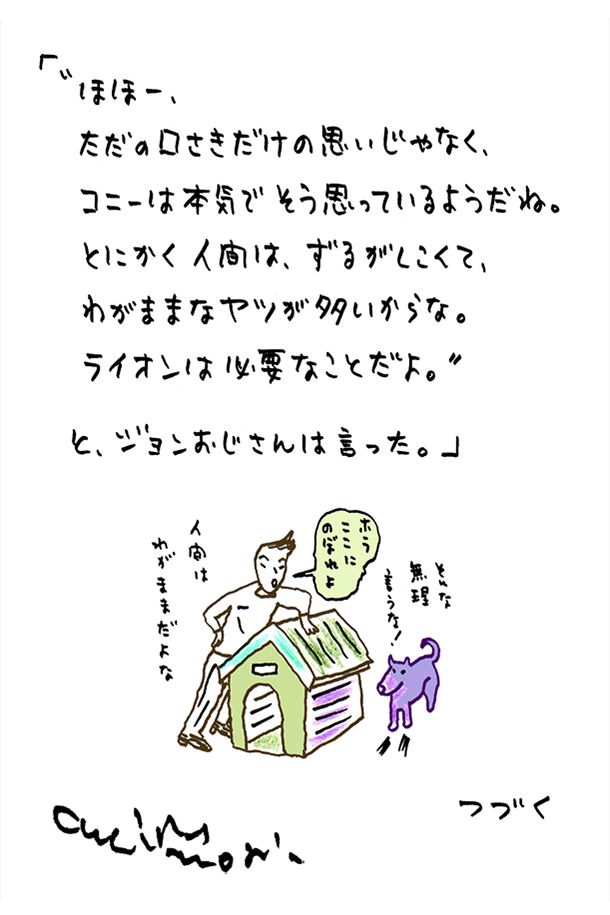 「“ほほー、
ただの口さきだけの思いじゃなく、
コニーは本気でそう思っているようだね。
とにかく人間は、ずるがしこくて、
わがままなヤツが多いからな。
ライオンは必要なことだよ。”
と、ジョンおじさんは言った。」
ホラ
ここに
のぼれよ
人間は
わがままだよな
そんな
無理
言うな!
つづく